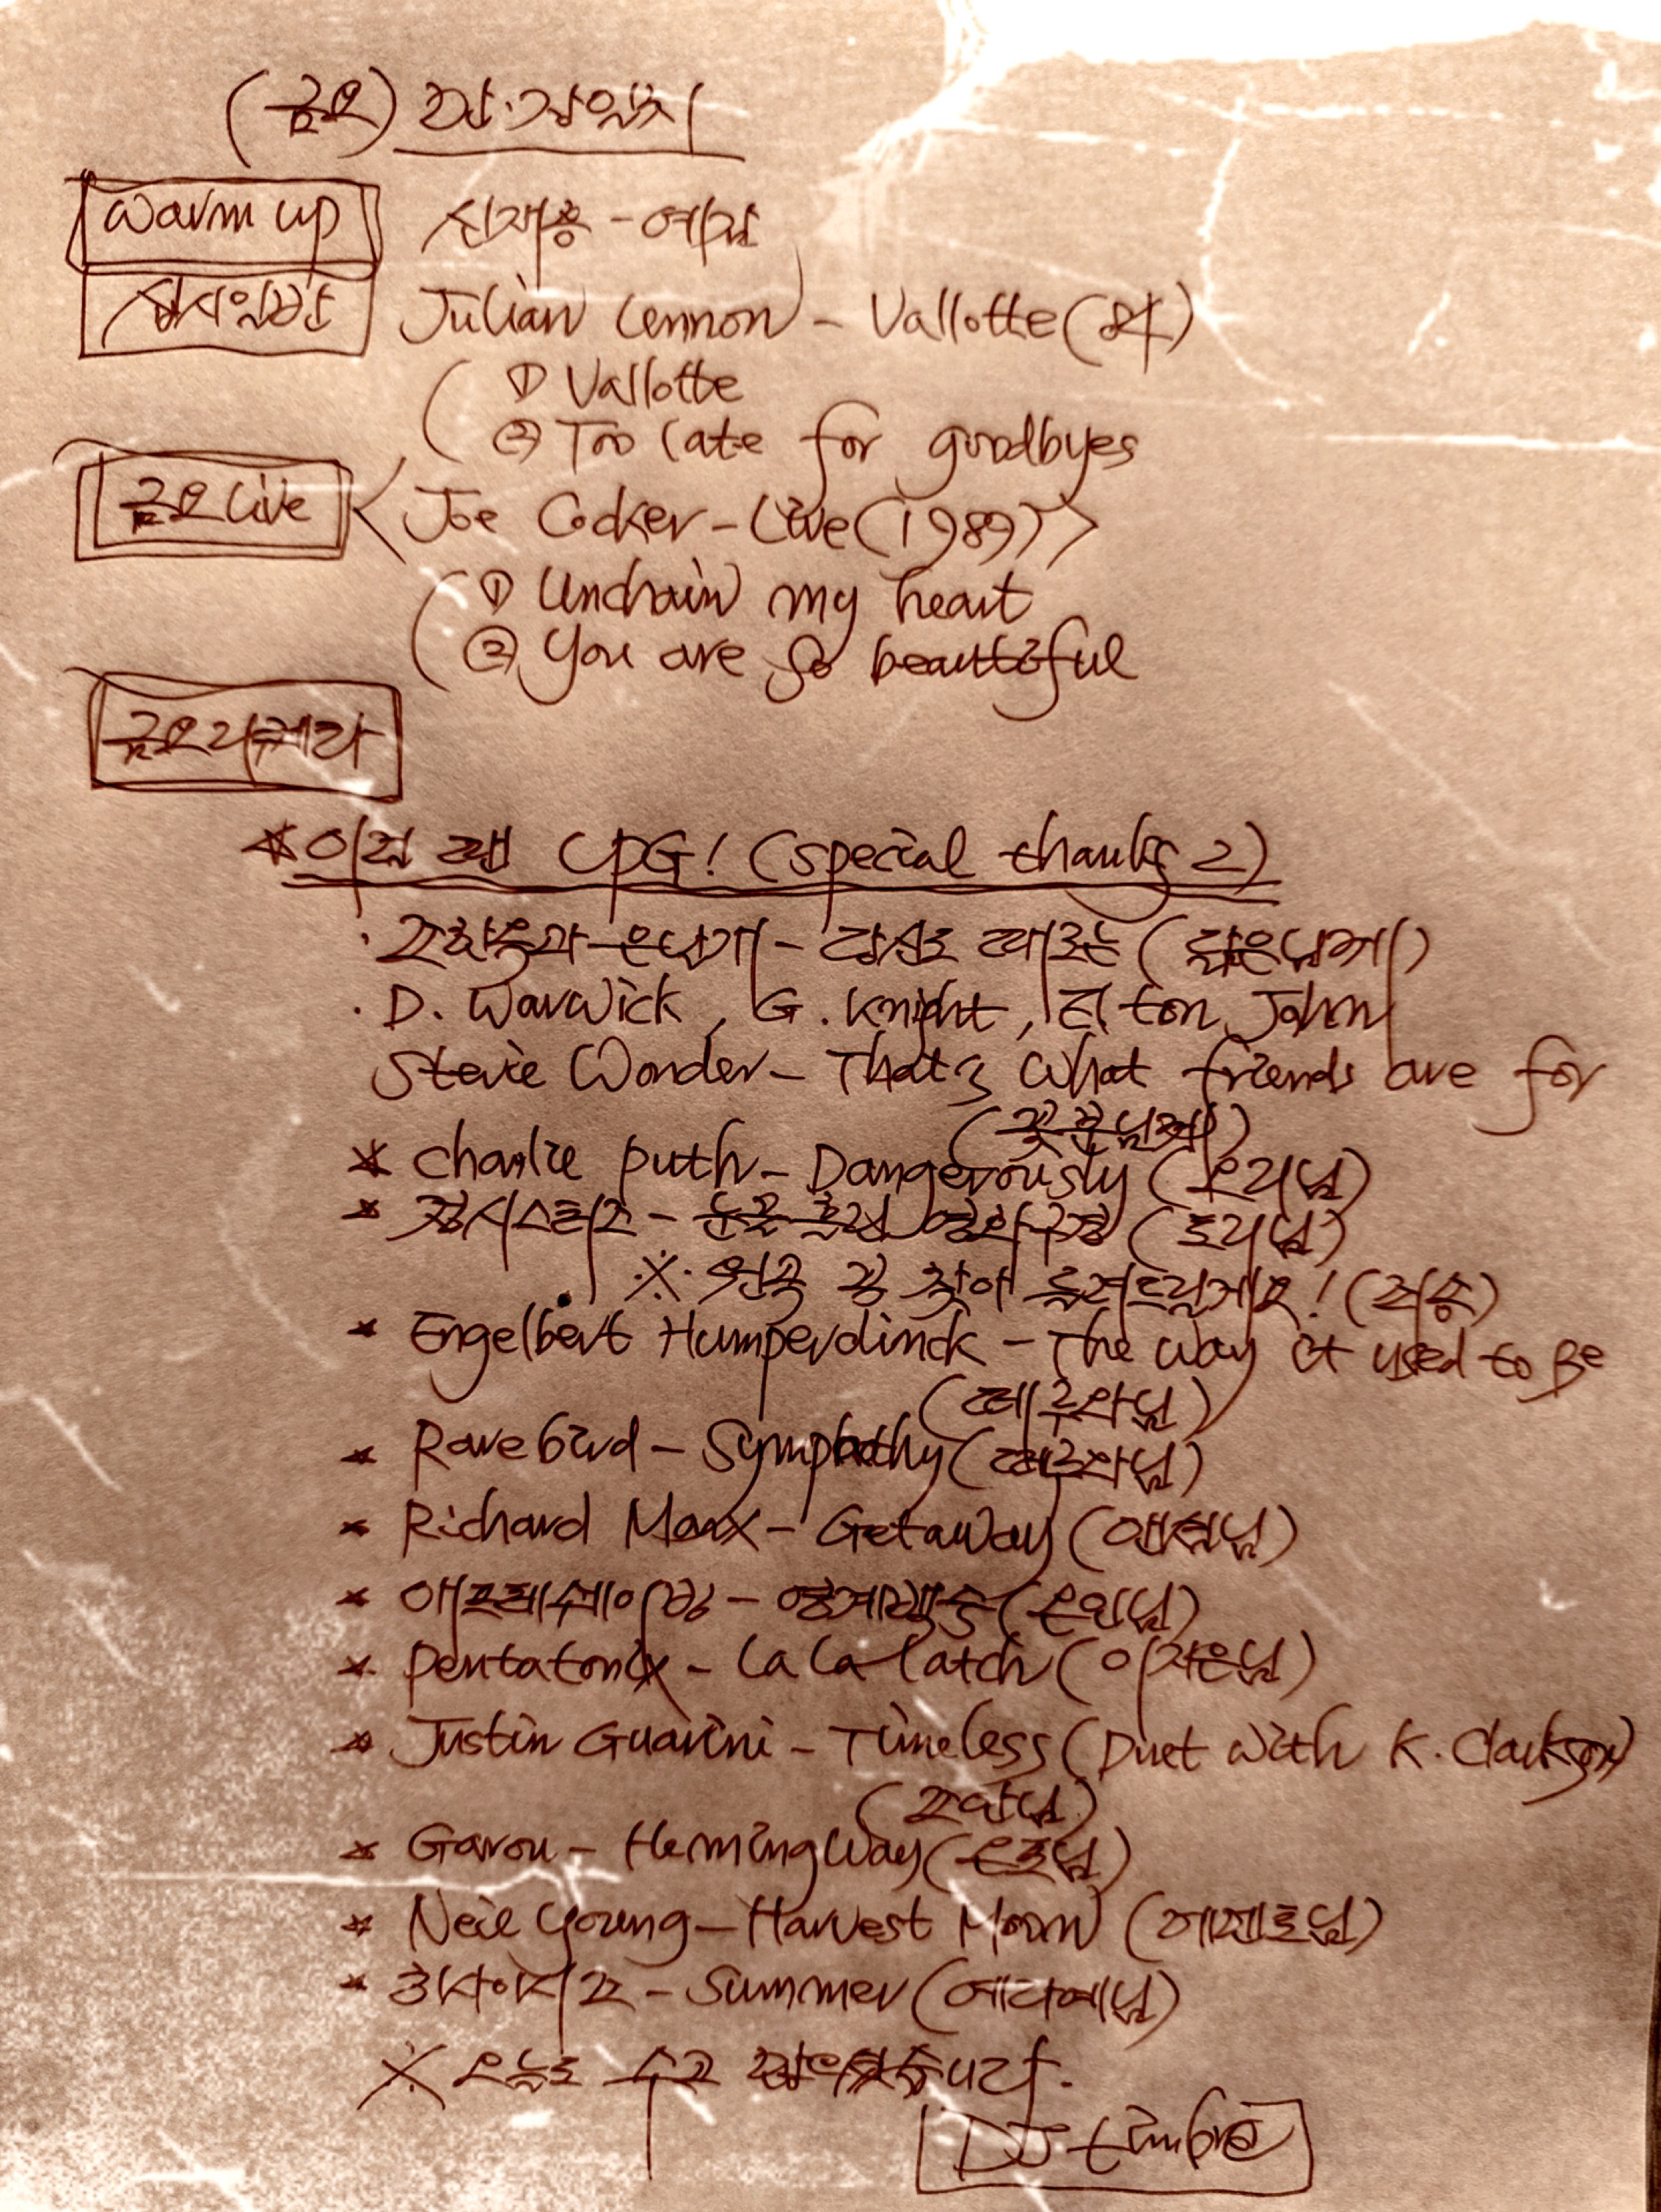 (금요)
Warm up 신재홍 - 예감
십시일반 Julian Lennon - Vallotte(84)
① Vallotte
② Too late for goodbyes
금요 Live <Joe Cocker - Live(1989)>
① Unchain my heart
② You are so beautiful
금요리퀘라
* 이럴 땐 CPG! (special thanks 2)
· 강산도 때로는
· D. Warwick, G. Knight, Elton John
Stevie Wonder - That's What friends are for
* Charlie puth - Dangerously (오리님)
* 펄시스터즈 - 눈물 흘린 영화구경 (토리님)
※ 원곡 꼭 찾아 들려드릴게요! (죄송)
* Engelbert Humperdinck - The Way it used to Be
(떼루와님)
* Rarebird - Sympathy (떼루와님)
* Richard Marx - Getaway
* 어프레쉐이빙 - 영계백숙
* Pentatonix - La La Latch (이작은님)
* Justin Guarini - Timeless (Duet With K. Clarkson)
* Garou - HemingWay
* Neil Young - Harvest Moon (제페토님)
* 히사이시조 - Summer
※ 오늘도 수고 많으셨습니다.
DJ timbre